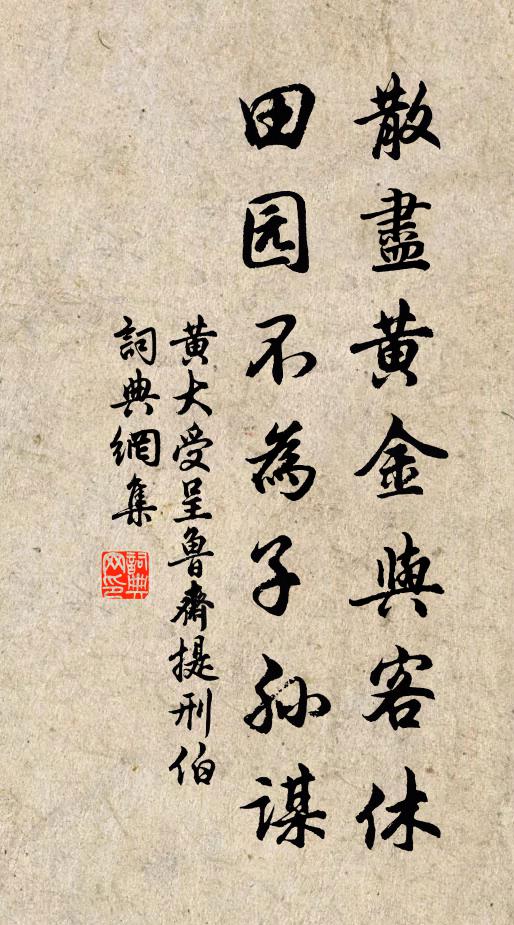 散盡黄金與客休
田园不為子孙謀
黄大受呈魯齋提刑伯
詞典網集
詞典網印